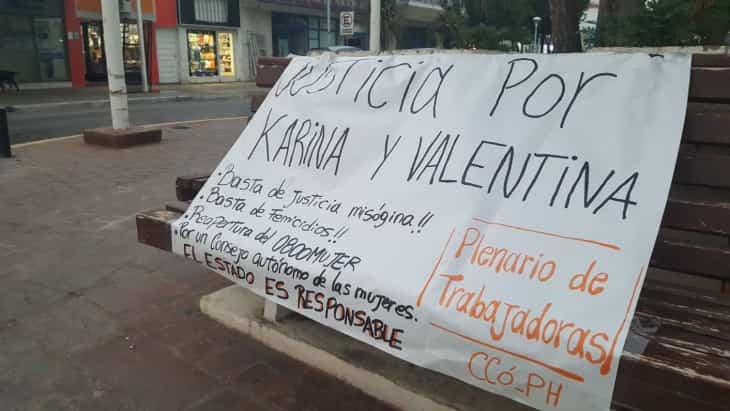 JUSTICIA POR
KARINA Y VALENTINA
• Basta de justicia misógina!!
• Basta de femicidios!!
• Reapertura del 0800MUJER
• Por un Consejo autónomo de las mujeres.
EL ESTADO ES RESPONSABLE
Plenario de
Trabajadoras
CCó_PH
E